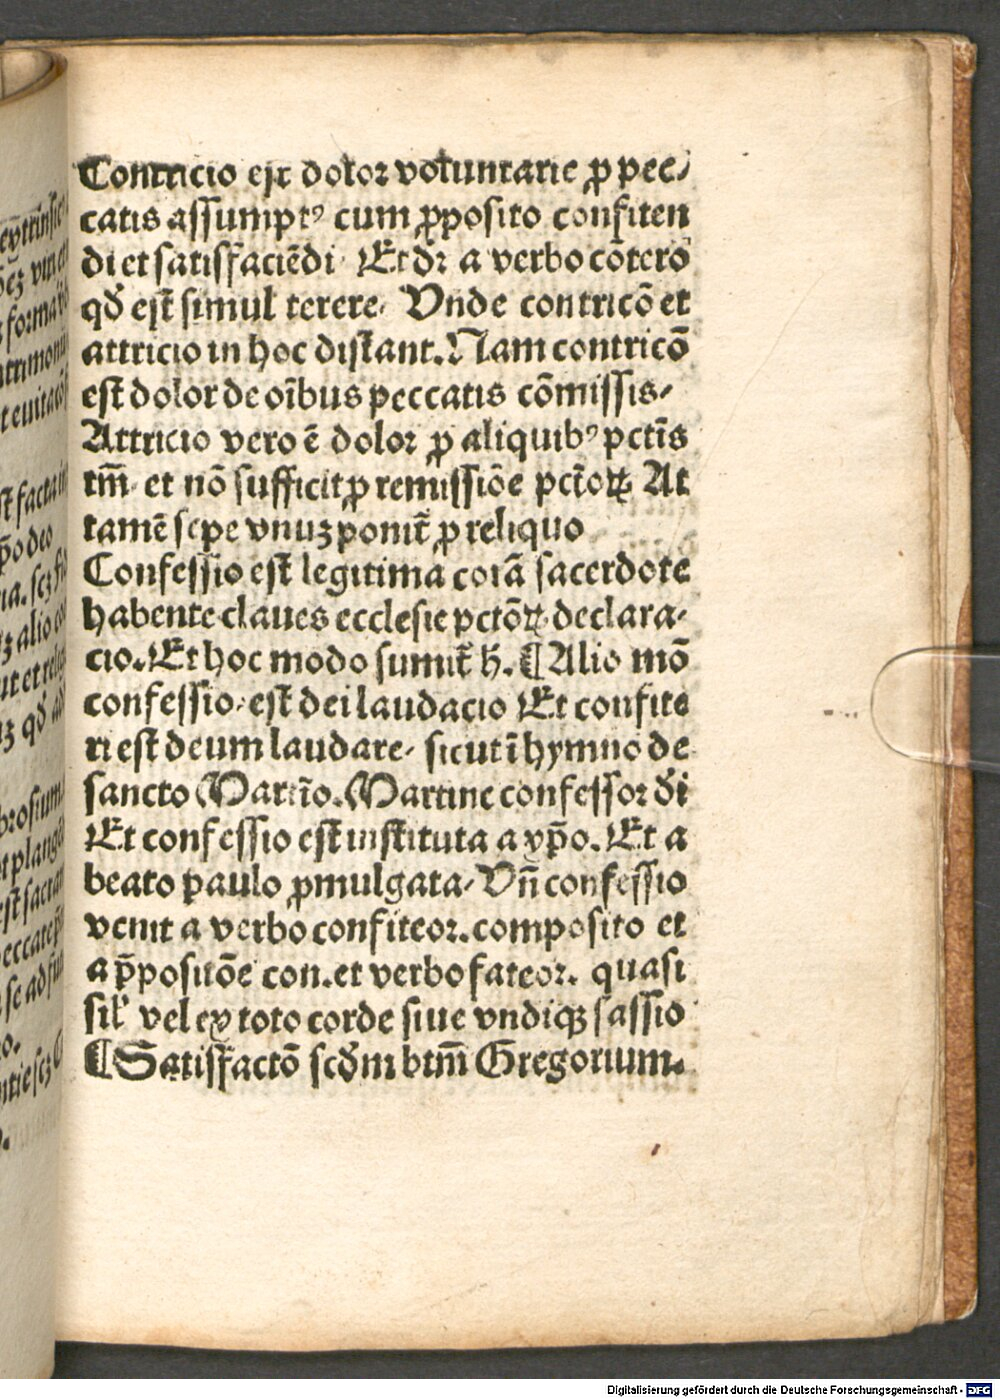 Contricio eſt dolor voluntarie ꝓ pec⸗
catis aſſumptꝰ cum ꝓpoſito confiten
di et ſatiſfaciēdi· Et dꝛ a verbo cōtero
qd̕ eſt ſimul terere· Vnde contricō et
attricio in hoc diſtant. Nam contricō
eſt dolor de oībus peccatis cōmiſſis⸗
Attricio vero ē dolor ꝓ aliquibꝰ pctīs
tm̄· et nō ſufficit ꝓ remiſſiōe pctōꝝ At
tamē ſepe vnuꝫ ponit̄ ꝓ reliquo
Confeſſio eſt legitima corā ſacerdote
habente claues eccleſie pctōꝝ declara⸗
cio. Et hoc modo ſumit̄ h̕. ¶ Alio mō
confeſſio· eſt dei laudacio Et confite
ri eſt deum laudare⸗ ſicut ī hymno de
ſancto Martīo. Martine confeſſor d̕i
Et confeſſio eſt inſtituta a xp̄o. Et a
beato paulo ꝓmulgata⸗ Vn̄ confeſſio
venit a verbo confiteoꝛ. compoſito et
a p̄poſitiōe con. et verbo fateoꝛ. quaſi
ſil̕ vel ex toto corde ſiue vndiqꝫ faſſio
¶ Satiſfactō ſcd̕m btm̄ Gregorium.
ſt facta
p̄o deo
Digitalisierung gefördert durch die Deutsche Forschungsgemeinschaft - DFG